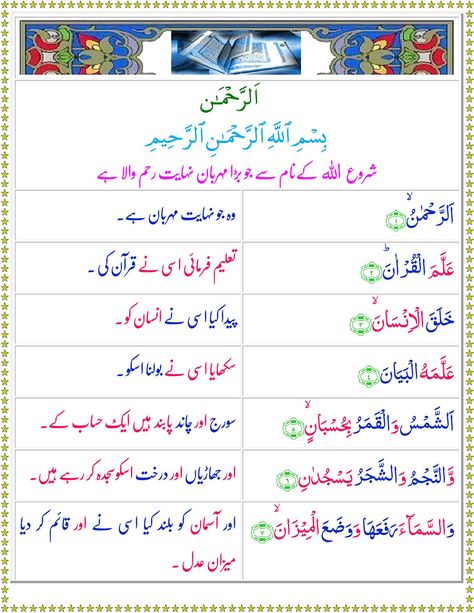 اَلرَّحْمٰن
بِسْمِ اللّٰهِ الرَّحْمٰنِ الرَّحِيْمِ
شروع اللہ کے نام سے جو بڑا مہربان نہایت رحم والا ہے
اَلرَّحْمٰنُۙ ﴿۱﴾ وہ جو نہایت مہربان ہے۔
عَلَّمَ الْقُرْاٰنَؕ ﴿۲﴾ تعلیم فرمائی اسی نے قرآن کی۔
خَلَقَ الْاِنْسَانَۙ ﴿۳﴾ پیدا کیا اسی نے انسان کو۔
عَلَّمَهُ الْبَيَانَ ﴿۴﴾ سکھایا اسی نے بولنا اسکو۔
اَلشَّمْسُ وَالْقَمَرُ بِحُسْبَانٍۙ ﴿۵﴾ سورج اور چاند پابند ہیں ایک حساب کے۔
وَّالنَّجْمُ وَالشَّجَرُ يَسْجُدٰنِ ﴿۶﴾ اور جھاڑیاں اور درخت اسکو سجدہ کر رہے ہیں۔
وَالسَّمَآءَ رَفَعَهَا وَوَضَعَ الْمِيْزَانَۙ ﴿۷﴾ اور آسمان کو بلند کیا اسی نے اور قائم کر دیا
میزان عدل۔